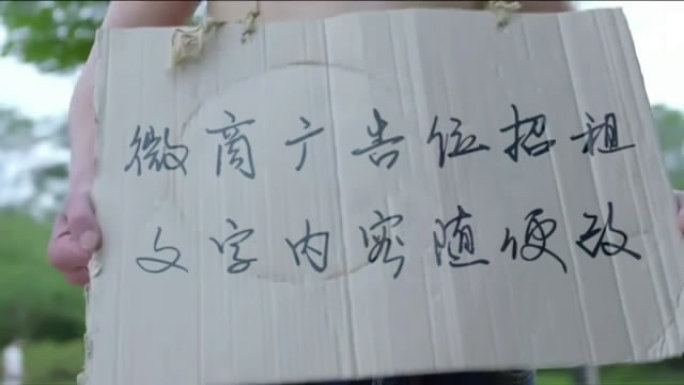 微商广告位招租
文字内容随便改